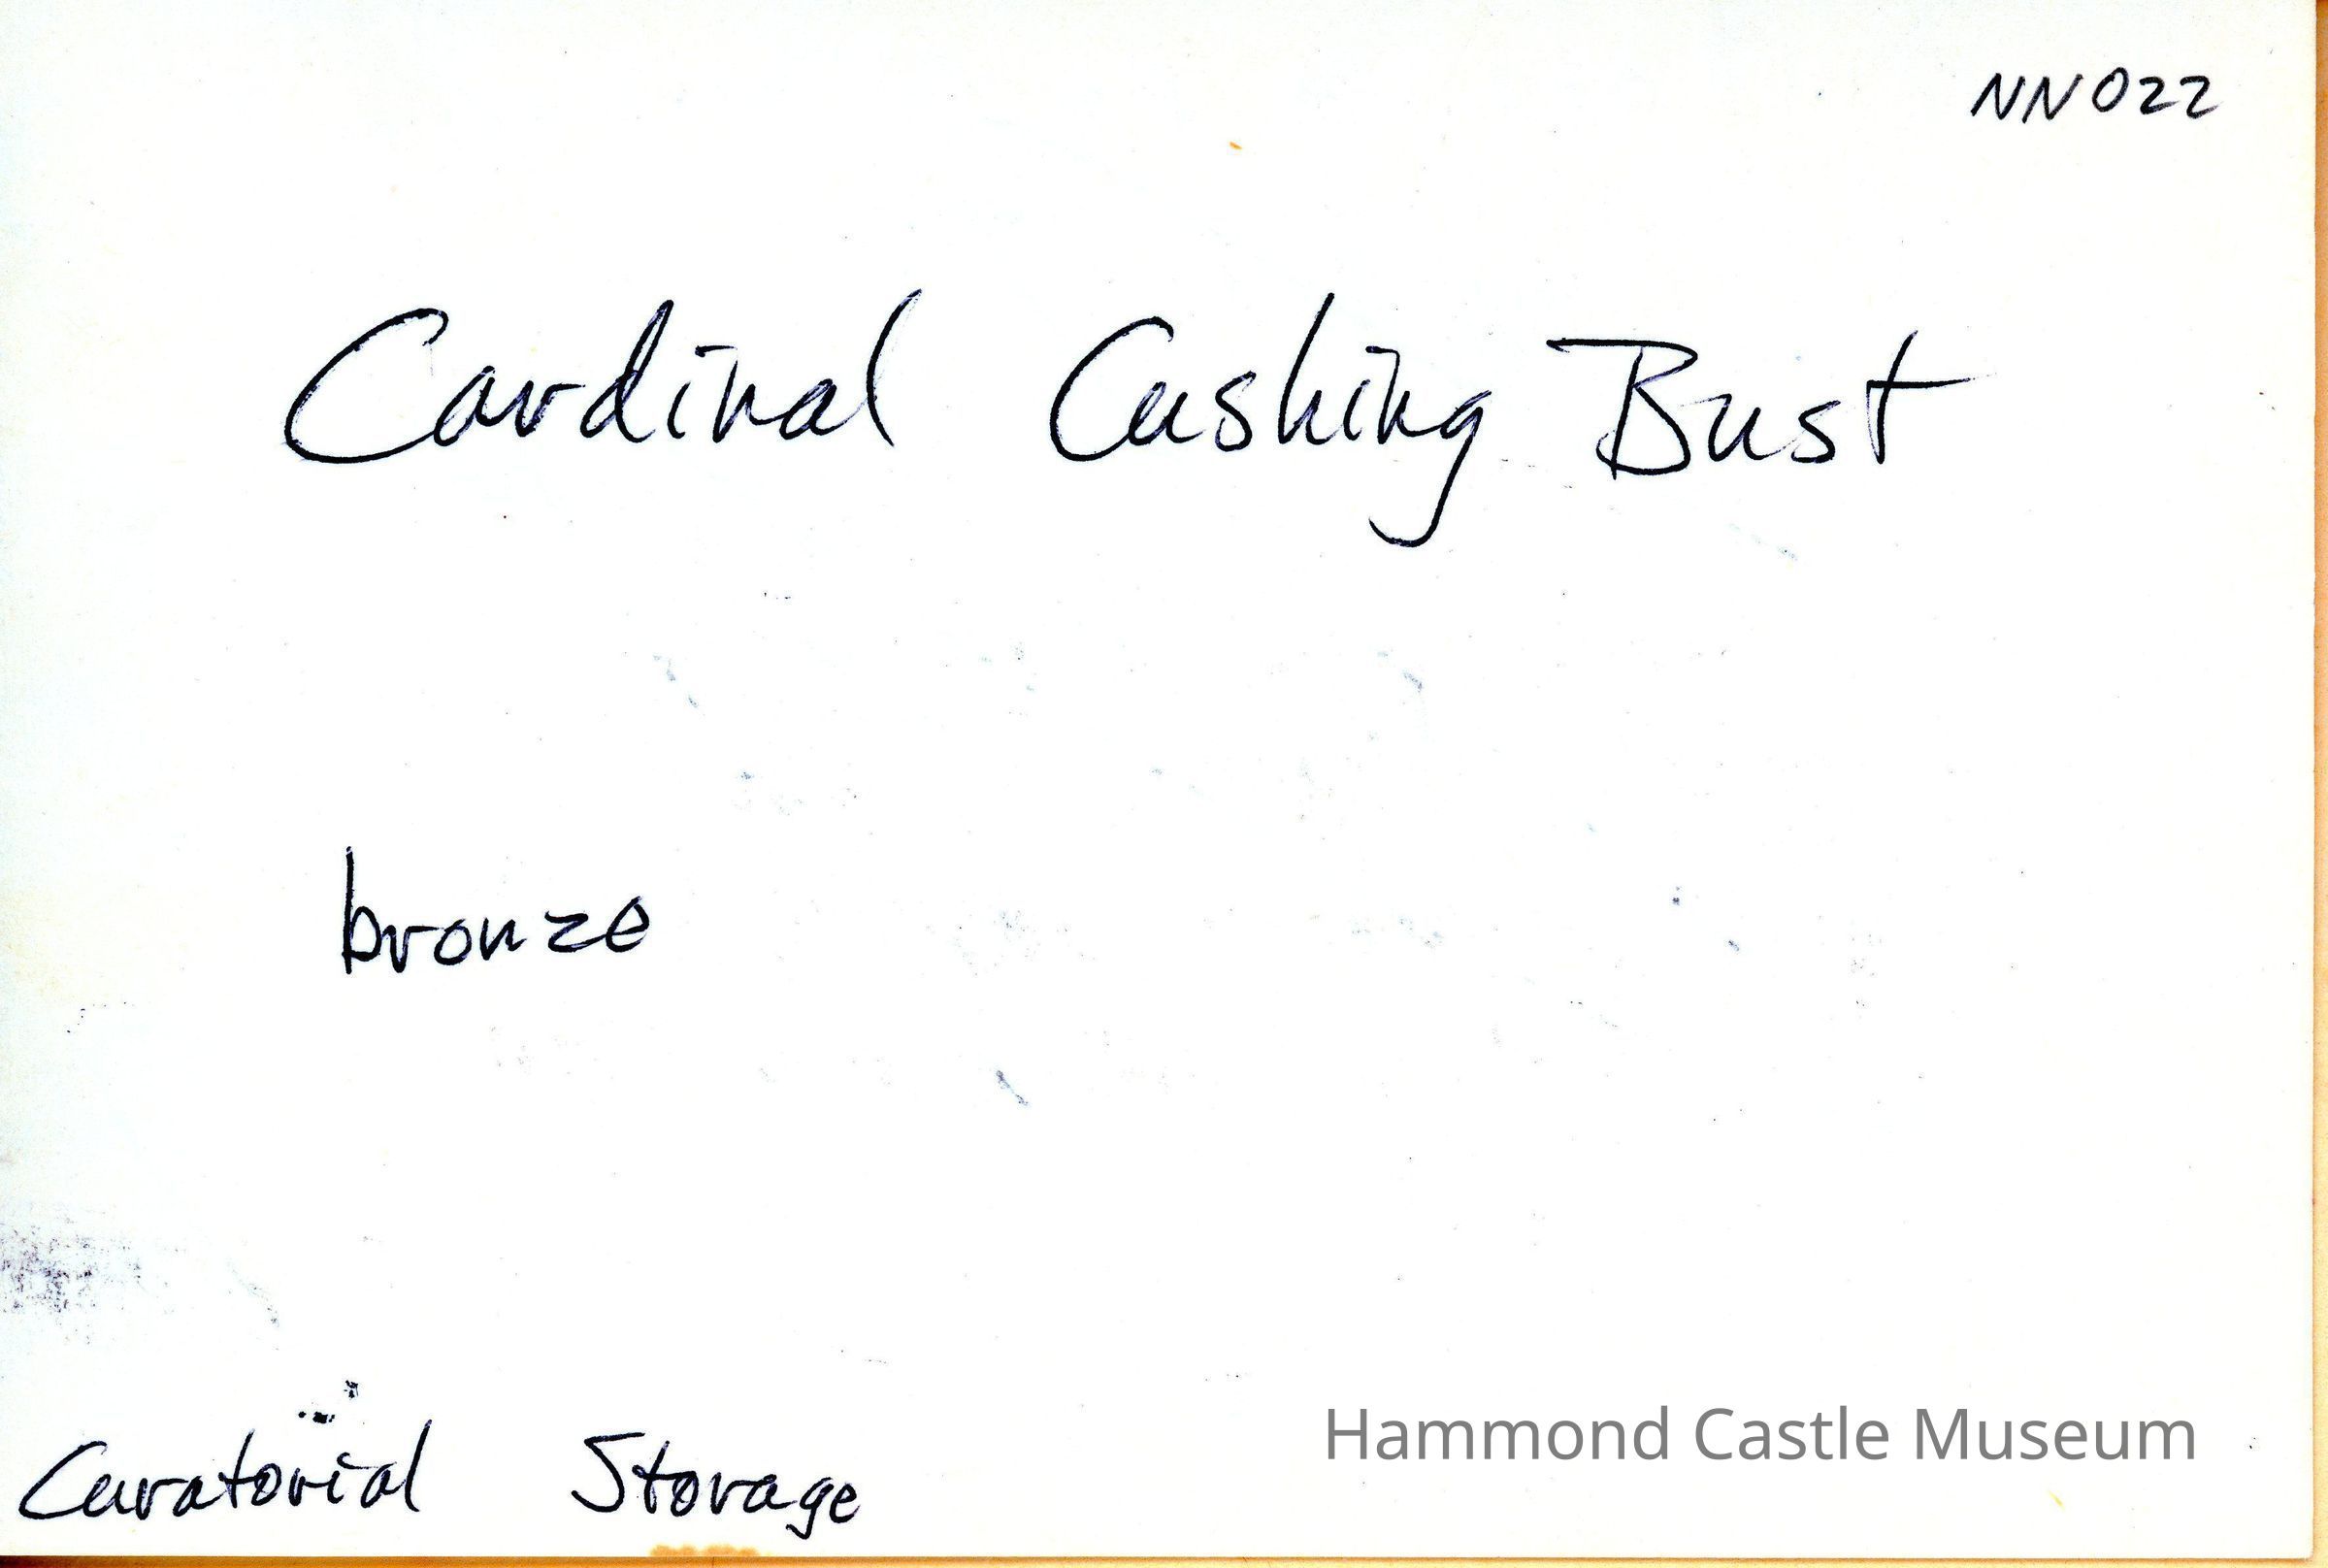 NN022
Cardinal Cushing Bust
bronze
Curatorial Storage
Hammond Castle Museum